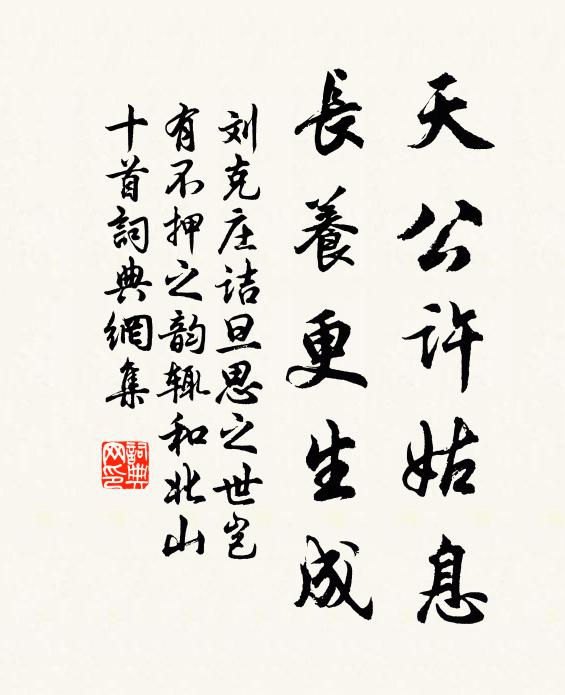 天公許姑息
長養更生成
刘克庄诘旦思之世岂
有不押之韵辄和北山
十首詞典網集
詞典
网印